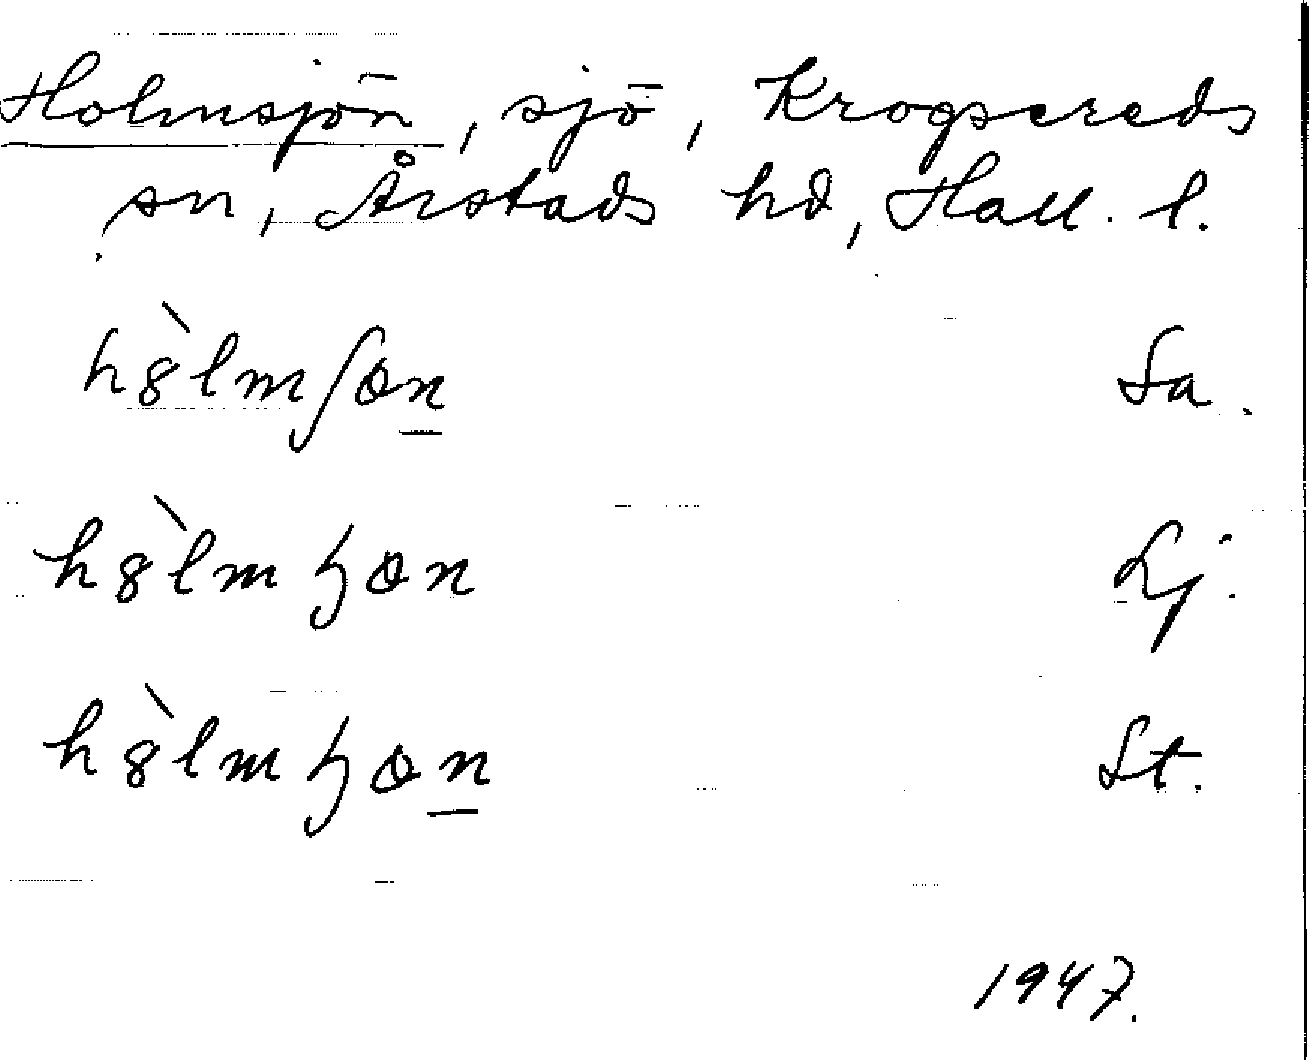 Holmsjön, sjö, Krogsereds
sn, Årstads hd, Hall. l.
hȣ̀lmʃɷn Sa.
hȣ̀lmɧɷn Lj.
hȣ̀lmɧɷn St.
1947.